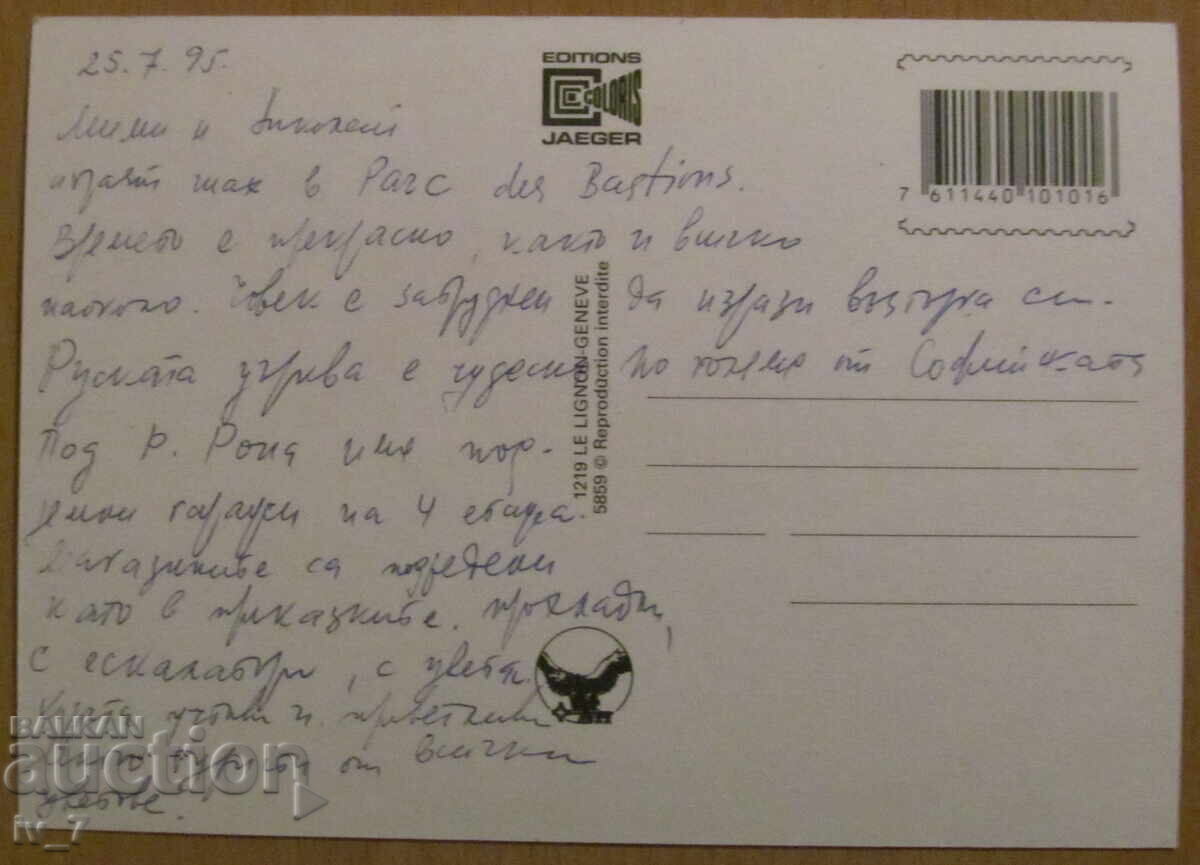 25.7.95.
Мими и Николай
играят шах в Parc des Bastions.
Времето е прекрасно, както и всичко
наоколо. Човек е затруднен да изрази възторга си.
Руската църква е чудесна по голяма от Софийската
Под р. Рона има под-
земни гаражи на 4 етажа.
Магазините са подредени
като в приказките. прохладни,
с ескалатори, с цветя.
Хората учтиви и приветливи
туристи от всички
цветове.
EDITIONS
COLORIS
JAEGER
7 611440 101016
1219 LE LIGNON-GENEVE
5859 © Reproduction interdite
BALKAN
auction
iv_7